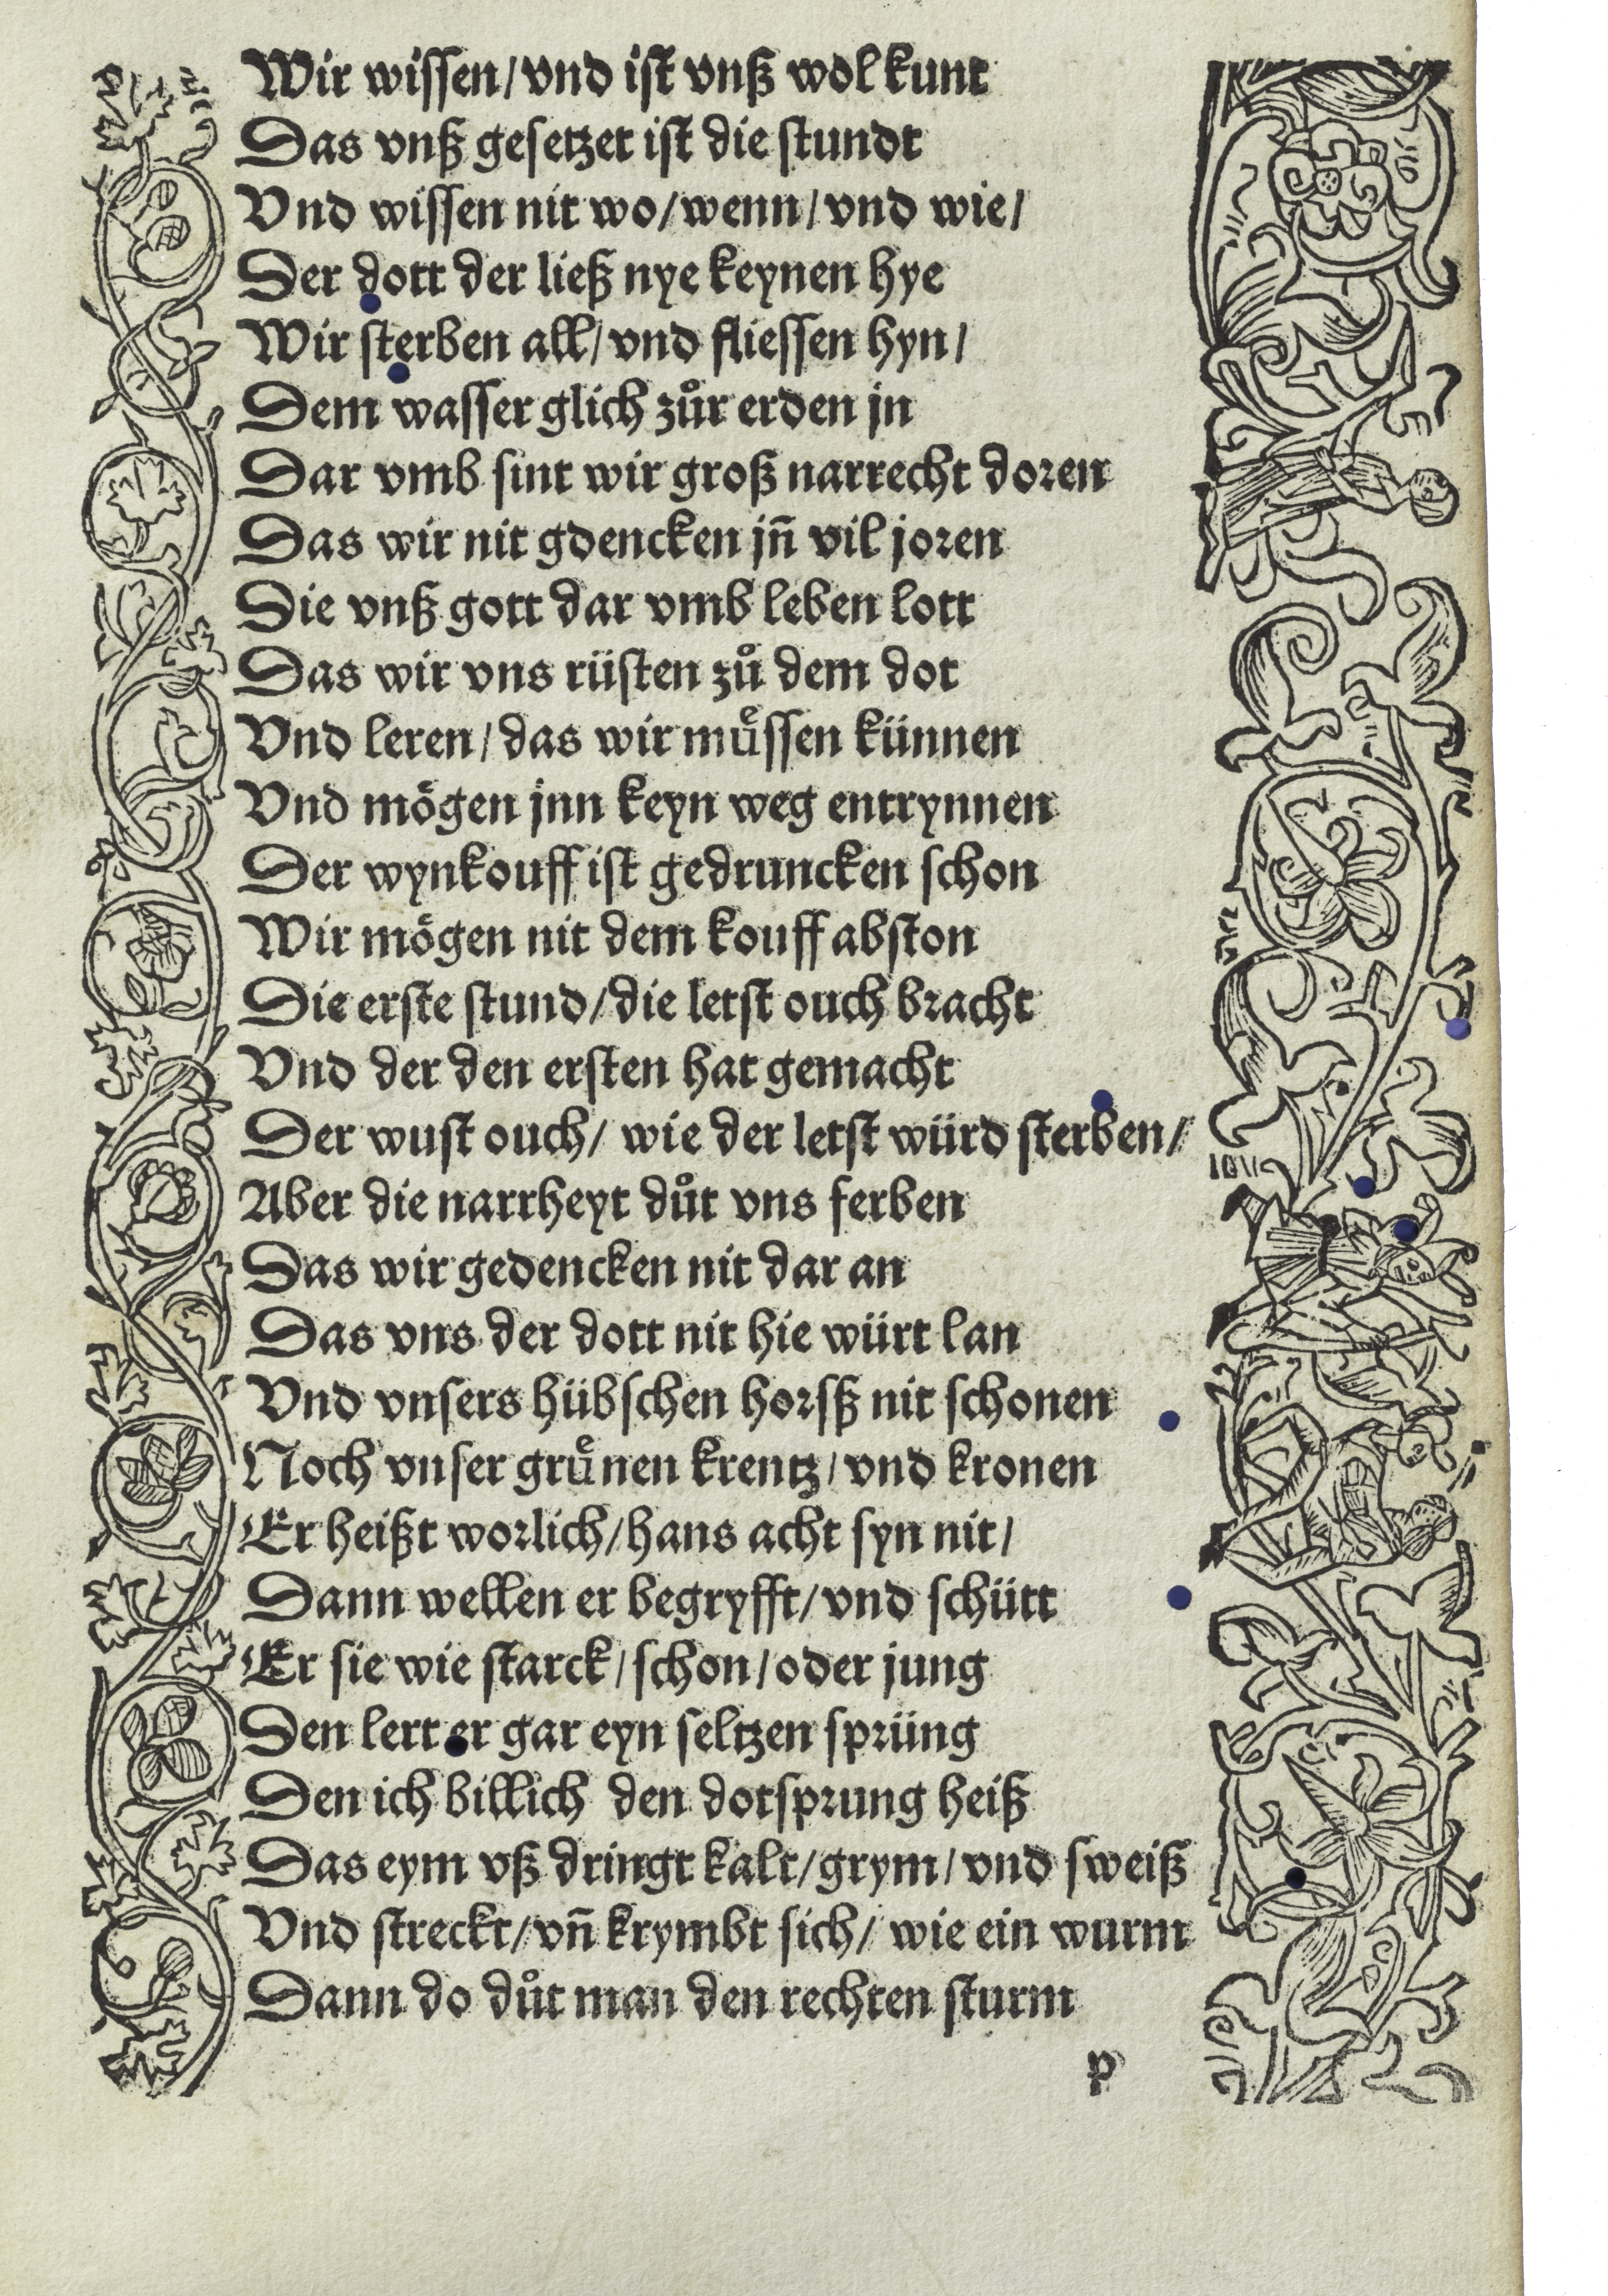 Wir wissen/vnd ist vnß wol kunt
Das vnß gesetzet ist die stundt
Vnd wissen nit wo/wenn/vnd wie/
Der dott der ließ nye keynen hye
Wir sterben all/vnd fliessen hyn/
Dem wasser glich zůr erden jn
Dar vmb sint wir groß narrecht doren
Das wir nit gdencken jn̄ vil joren
Die vnß gott dar vmb leben lott
Das wir vns rüsten zů dem dot
Vnd leren/das wir muͤssen künnen
Vnd mögen jnn keyn weg entrynnen
Der wynkouff ist gedruncken schon
Wir mögen nit dem kouff abston
Die erste stund/die letst ouch bracht
Vnd der den ersten hat gemacht
Der wust ouch/ wie der letst würd sterben/
Aber die narrheyt důt vns ferben
Das wir gedencken nit dar an
Das vns der dott nit hie würt lan
Vnd vnsers hübschen horsß nit schonen
Noch vnser gruͤnen krentz/vnd kronen
Er heißt worlich/hans acht syn nit/
Dann wellen er begryfft/vnd schütt
Er sie wie starck/schon/oder jung
Den lert er gar eyn seltzen sprüng
Den ich billich den dotsprung heiß
Das eym vß dringt kalt/grym/vnd sweiß
Vnd streckt/vn̄ krymbt sich/ wie ein wurm
Dann do důt man den rechten sturm
p